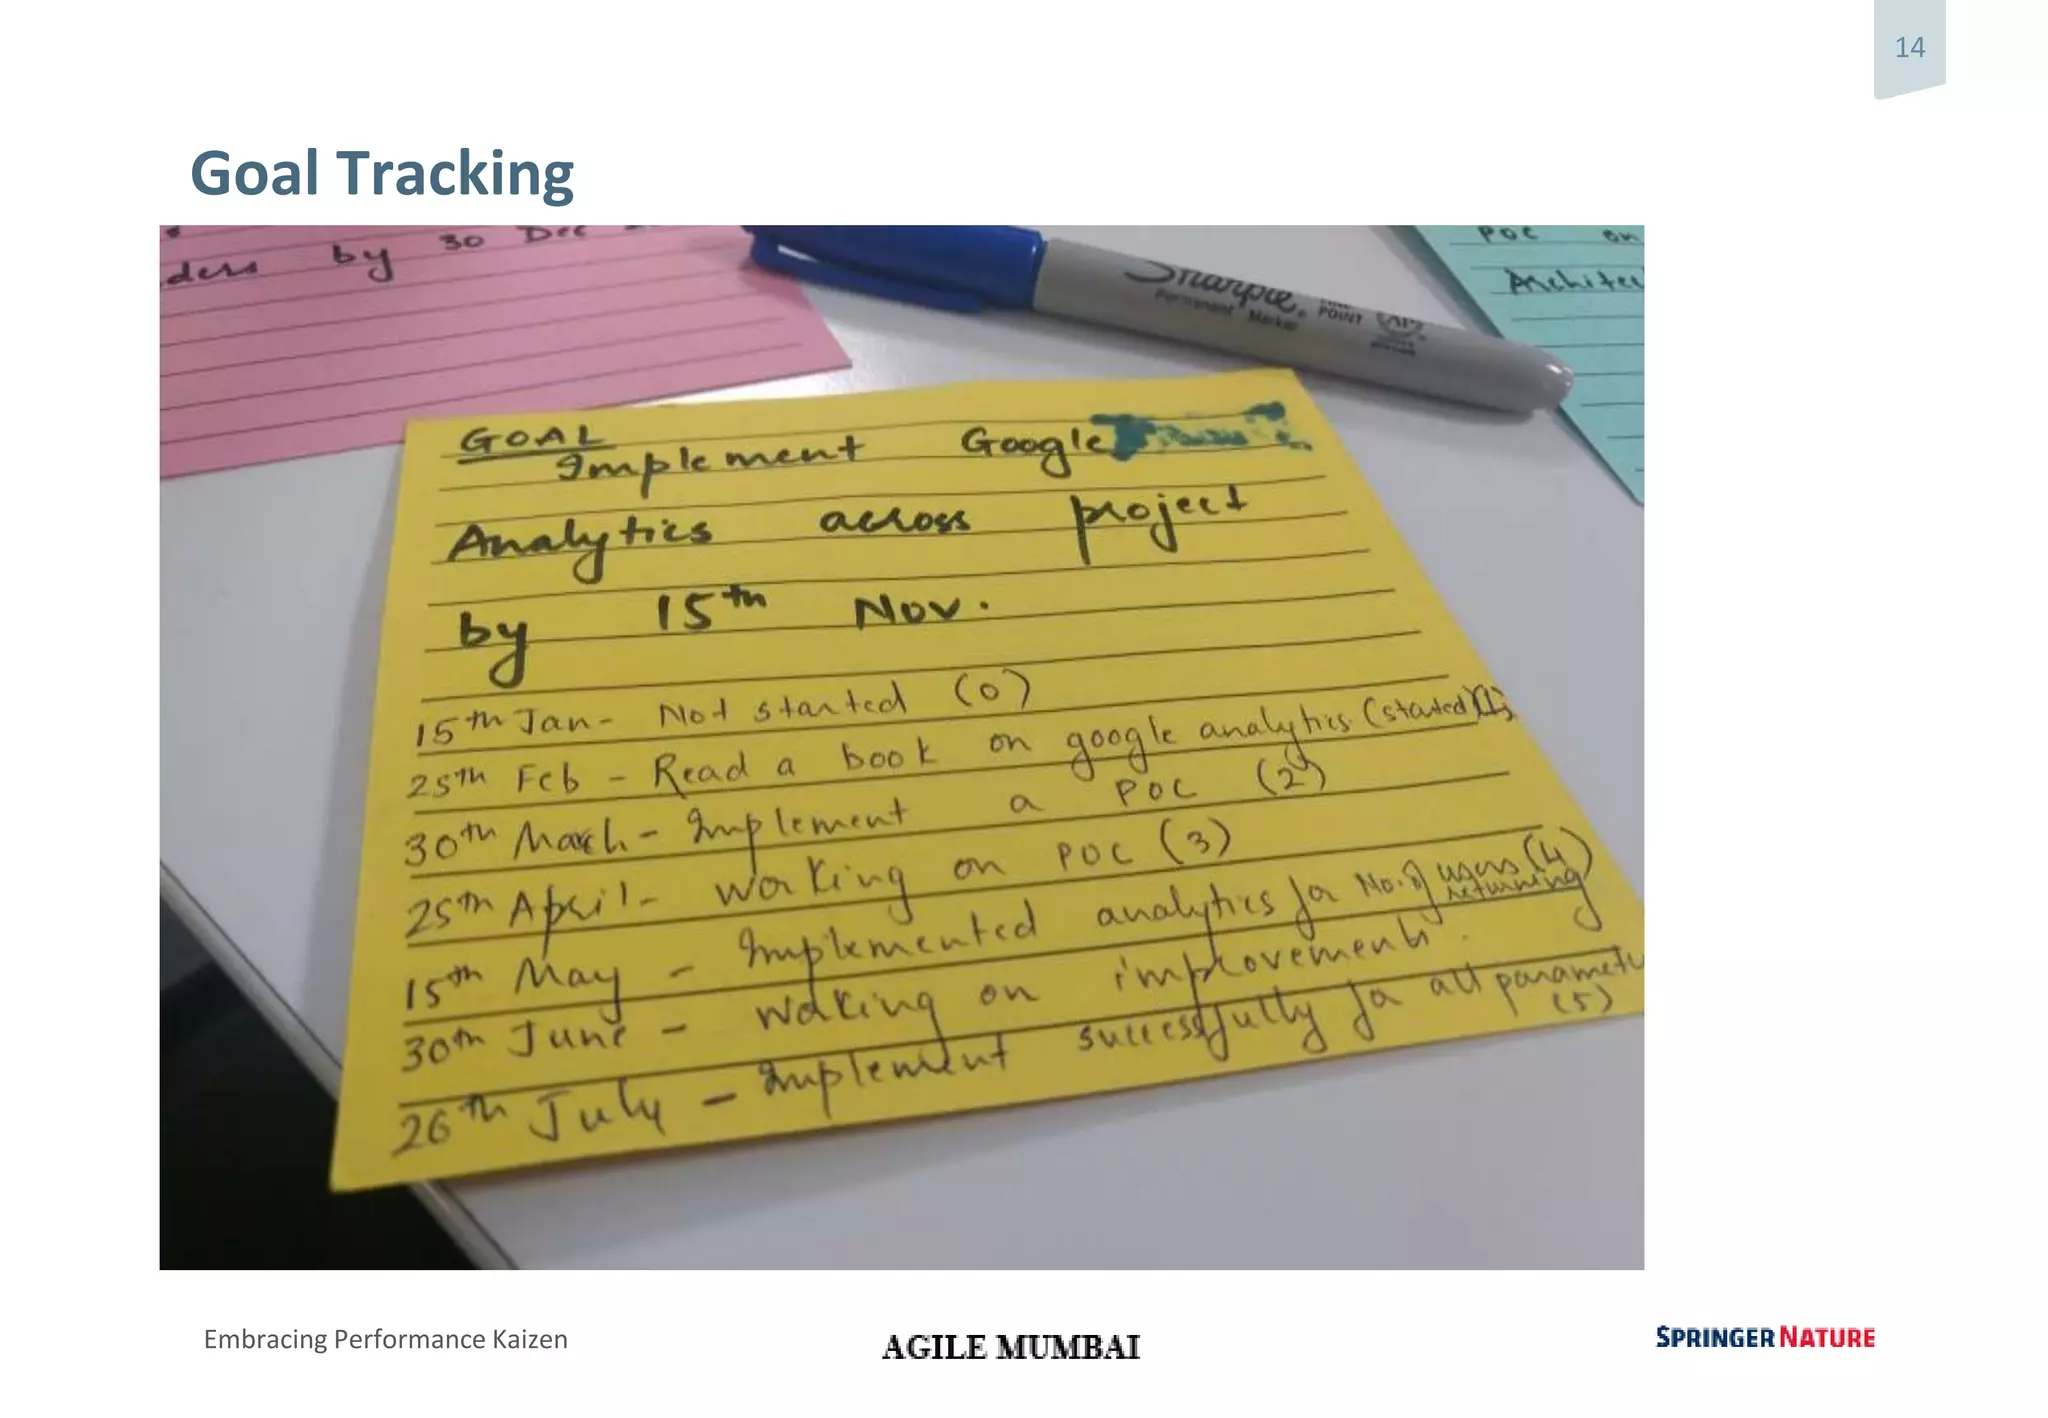 14
Goal Tracking
by 30 Dec
ders
Sharpie
Permanent Marker
POINT
POC on
Architec
GOAL
Implement Google
Analytics across project
by 15th Nov.
15th Jan - Not started (0)
25th Feb - Read a book on google analytics (started) (1)
30th March - Implement a POC (2)
25th April - Working on POC (3)
15th May - Implemented analytics for No. of users (4)
returning
30th June - Working on improvements.
26th July - Implement successfully for all paramete
(5)
Embracing Performance Kaizen
AGILE MUMBAI
SPRINGER NATURE